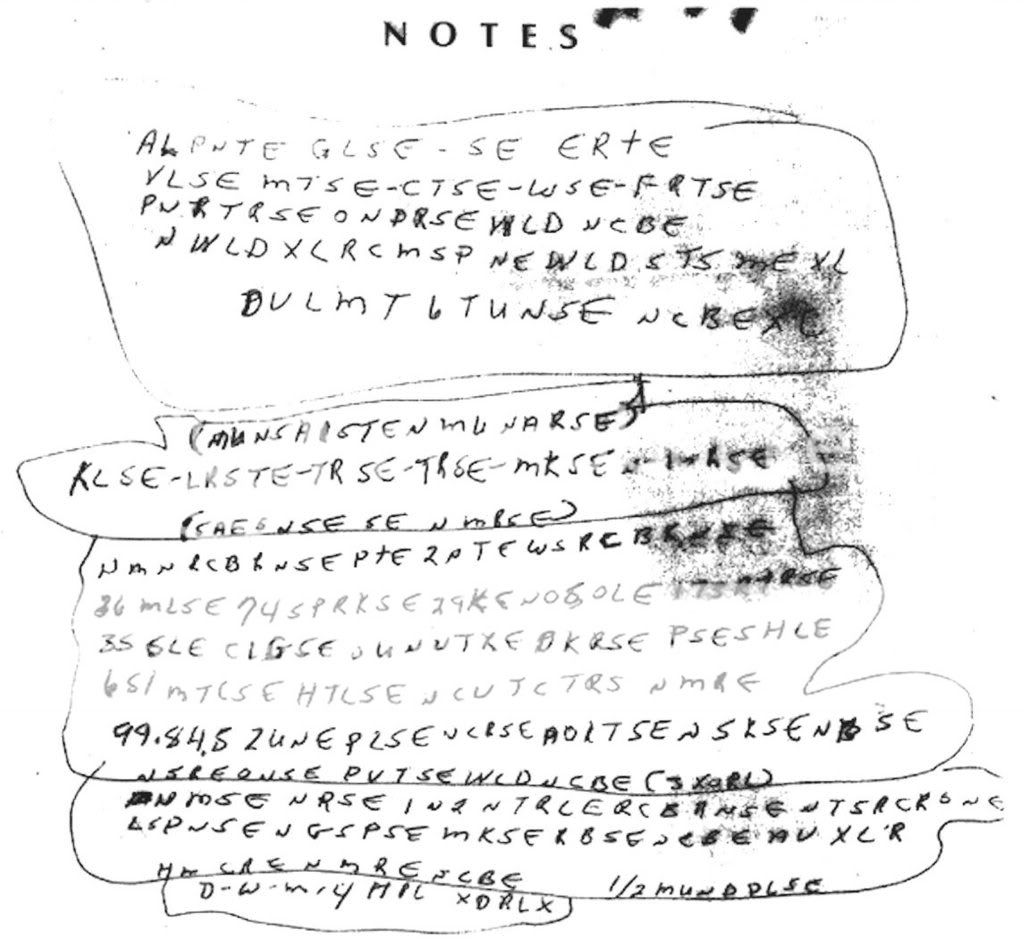 NOTES
ALPNTE GLSE-SE ERTE
VLSE MTSE-CTSE-WSE-FRTSE
PNRTRSEONDRSEWLD NCBE
NWLDXLRCMSP NEWLDSTS MEXL
DULMT6TUNSE NCBEXC
(MUNSAISTENMUNARSE)
KLSE-LRSTE-TRSE-TRSE-MKSEN
(SAESNSE SE N MRSE)
NMNRCBRNSEPTE2PTEWSRCBRNSE
36MLSE 74SPRKSE29KENOSOLE
35GLE CLGSE UUNUTXE BKRSE PSESHLE
651MTCSE HTLSE NCUTCTRS NMRE
99.84.52UNEPLSENCRSEAOLTSENSKSENBSE
NSREONSE PVTSEWLDNCBE(3XORL)
NMSE NRSE IN2NTRLERCBRNSE NTSRCRONE
LSPNSENGSPSE MKSERBSENCBEAUXLR
HM CRE NMRE NCBE 1/2MUNDDLSE
D-W-M-Y HPL XDRLX